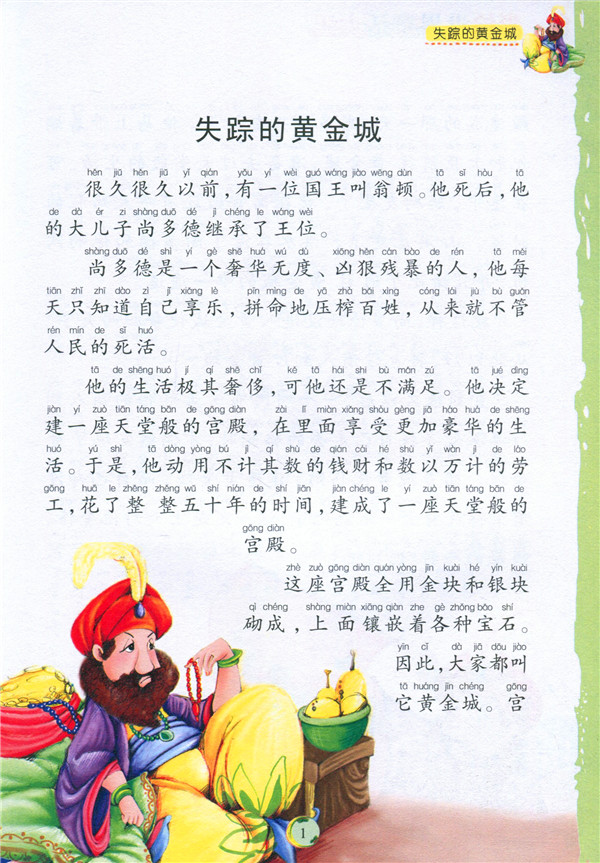 失踪的黄金城
失踪的黄金城
hěn jiǔ hěn jiǔ yǐ qián yǒu yí wèi guó wáng jiào wēng dùn tā sǐ hòu tā
很久很久以前，有一位国王叫翁顿。他死后，他
de dà ér zi shàng duō dé jì chéng le wáng wèi
的大儿子尚多德继承了王位。
shàng duō dé shì yí gè shē huá wú dù xiōng hěn cán bào de rén tā měi
尚多德是一个奢华无度、凶狠残暴的人，他每
tiān zhǐ zhī dào zì jǐ xiǎng lè pīn mìng de yā zhà bǎi xìng cóng lái jiù bù guǎn
天只知道自己享乐，拼命地压榨百姓，从来就不管
rén mín de sǐ huó
人民的死活。
tā de shēng huó jí qí shē chǐ kě tā hái shi bù mǎn zú tā jué dìng
他的生活极其奢侈，可他还是不满足。他决定
jiàn yí zuò tiān táng bān de gōng diàn zài lǐ miàn xiǎng shòu gèng jiā háo huá de shēng
建一座天堂般的宫殿，在里面享受更加豪华的生
huó yú shì tā dòng yòng bú jì qí shù de qián cái hé shù yǐ wàn jì de láo
活。于是，他动用不计其数的钱财和数以万计的劳
gōng huā le zhěng zhěng wǔ shí nián de shí jiān jiàn chéng le yí zuò tiān táng bān de
工，花了整整五十年的时间，建成了一座天堂般的
gōng diàn
宫殿。
zhè zuò gōng diàn quán yòng jīn kuài hé yín kuài
这座宫殿全用金块和银块
qì chéng shàng miàn xiāng qiàn zhe gè zhǒng bǎo shí
砌成，上面镶嵌着各种宝石。
yīn cǐ dà jiā dōu jiào
因此，大家都叫
tā huáng jīn chéng gōng
它黄金城。宫
1